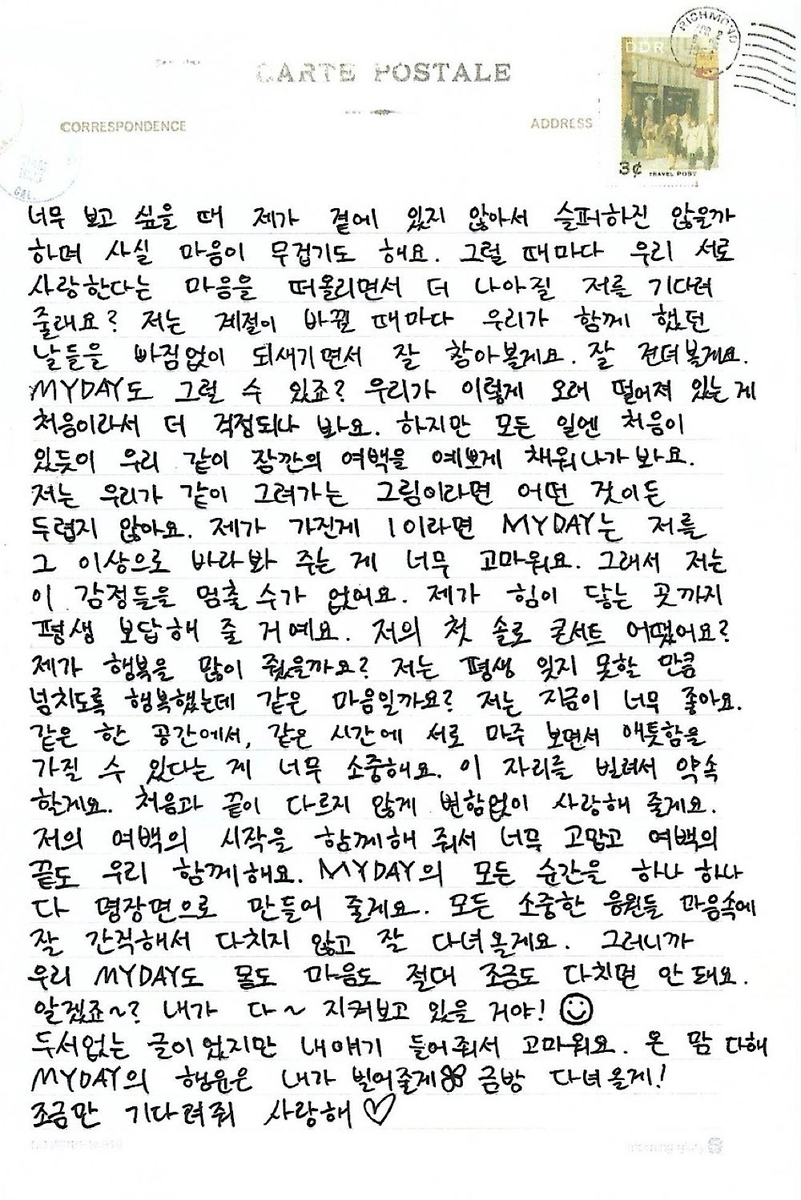 CARTE POSTALE
CORRESPONDENCE
ADDRESS
RICHMOND
DDR
3¢ TRAVEL POST
너무 보고 싶을 때 제가 곁에 있지 않아서 슬퍼하진 않을까
하며 사실 마음이 무겁기도 해요. 그럴 때마다 우리 서로
사랑한다는 마음을 떠올리면서 더 나아질 저를 기다려
줄래요? 저는 계절이 바뀔 때마다 우리가 함께 했던
날들을 빠짐없이 되새기면서 잘 참아볼게요. 잘 견뎌볼게요.
MYDAY도 그럴 수 있죠? 우리가 이렇게 오래 떨어져 있는게
처음이라서 더 걱정되나 봐요. 하지만 모든 일엔 처음이
있듯이 우리 같이 잠깐의 여백을 예쁘게 채워나가봐요.
저는 우리가 같이 그려가는 그림이라면 어떤 것이든
두렵지 않아요. 제가 가진게 1이라면 MYDAY는 저를
그 이상으로 바라봐 주는 게 너무 고마워요. 그래서 저는
이 감정들을 멈출 수가 없어요. 제가 힘이 닿는 곳까지
평생 보답해 줄 거예요. 저의 첫 솔로 콘서트 어땠어요?
제가 행복을 많이 줬을까요? 저는 평생 잊지 못할 만큼
넘치도록 행복했는데 같은 마음일까요? 저는 지금이 너무 좋아요.
같은 한 공간에서, 같은 시간에 서로 마주 보면서 애틋함을
가질 수 있다는 게 너무 소중해요. 이 자리를 빌려서 약속
할게요. 처음과 끝이 다르지 않게 변함없이 사랑해 줄게요.
저의 여백의 시작을 함께해 줘서 너무 고맙고 여백의
끝도 우리 함께해요. MYDAY의 모든 순간을 하나 하나
다 명장면으로 만들어 줄게요. 모든 소중한 응원들 마음속에
잘 간직해서 다치지 않고 잘 다녀올게요. 그러니까
우리 MYDAY도 몸도 마음도 절대 조금도 다치면 안 돼요.
알겠죠~? 내가 다~ 지켜보고 있을 거야!
두서없는 글이었지만 내 얘기 들어줘서 고마워요. 온 맘 다해
MYDAY의 행운은 내가 빌어줄게 금방 다녀올게!
조금만 기다려줘 사랑해 ♡